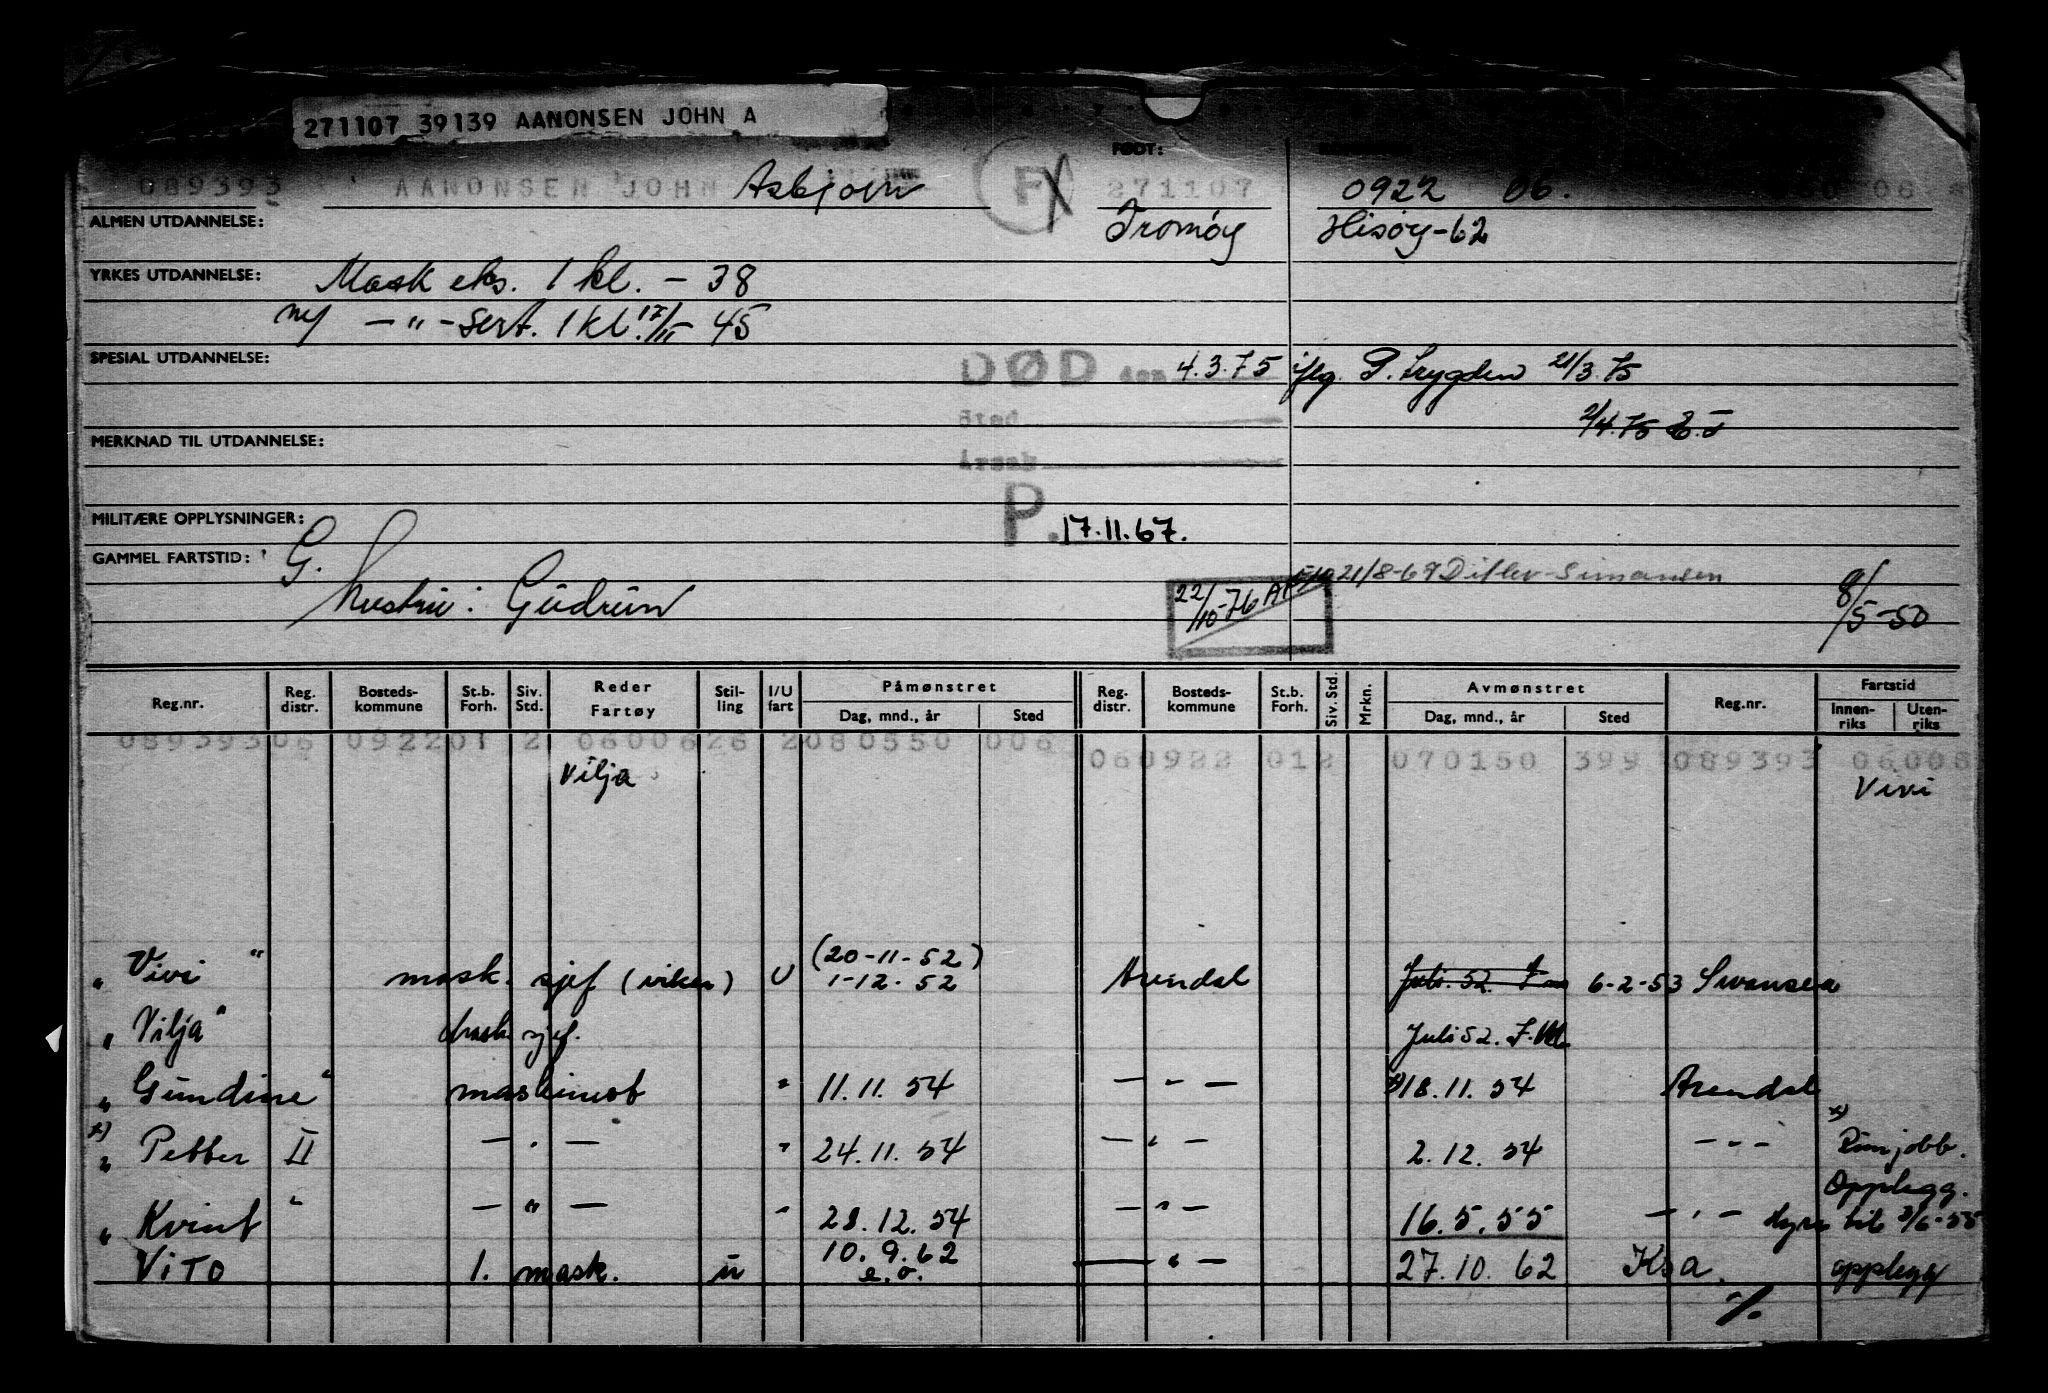 271107 39139 AANONSEN JOHN A
089393 AANONSEN JOHN Asbjørn F FØDT: 271107 0922 06.
ALMEN UTDANNELSE: Tromøy Hisøy-62
YRKES UTDANNELSE: Mask eks. 1 kl. - 38
ny -"- Sert. 1 kl. 17/11 45
SPESIAL UTDANNELSE: DØD den 4.3.75 iflg. P. trygden 21/3.75
Sted 2/4.75
MERKNAD TIL UTDANNELSE: Årsak
MILITÆRE OPPLYSNINGER: P. 17.11.67.
GAMMEL FARTSTID: G. 21/8-69 Ditlev-Simonsen
hustru: Gudrun 22/10-76 8/5-50
Reg.nr. Reg. distr. Bosteds- kommune St.b. Forh. Siv. Std. Reder Fartøy Stil- ling I/U fart Påmønstret Dag, mnd., år Sted Reg. distr. Bosteds- kommune St.b. Forh. Siv. Std. Mrkn. Avmønstret Dag, mnd., år Sted Reg.nr. Fartstid Innen- riks Uten- riks
089393 06 0922 01 2 06006 26 2 080550 006 06 0922 01 2 070150 399 089393 06006
Vilja Vivi
(20-11-52)
" Vivi " mask. sjef (vikar) U 1-12-52 Arendal Juli 52. 6-2-53 Swansea
" Vilja " Mask sjef. Juli 52.
" Gundine " maskinist " 11.11.54 - " - 18.11.54 Arendal
x) " Petter II - " - " 24.11.54 - " - 2.12.54 - " - x)
Opplegg.
" Kvint " - " - " 28.12.54 - " - 16.5.55 - " - til 3/6-55
VITO 1. mask. u 10.9.62 - " - 27.10.62 Ksa. opplegg
e.o.
./.